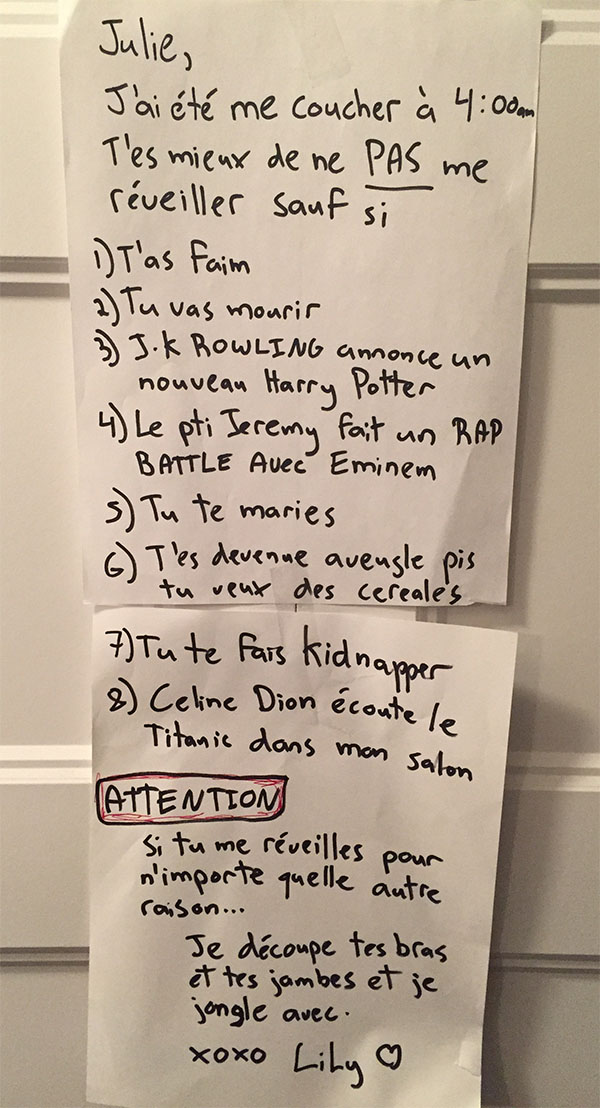 Julie,
J'ai été me coucher à 4:00am
T'es mieux de ne PAS me
réveiller sauf si
1) T'as faim
2) Tu vas mourir
3) J.K ROWLING annonce un
nouveau Harry Potter
4) Le pti Jeremy fait un RAP
BATTLE Avec Eminem
5) Tu te maries
6) T'es devenue aveugle pis
tu veux des cereales
7) Tu te fais kidnapper
8) Celine Dion écoute le
Titanic dans mon salon
ATTENTION
Si tu me réveilles pour
n'importe quelle autre
raison...
Je découpe tes bras
et tes jambes et je
jongle avec.
xoxo LiLy ♡